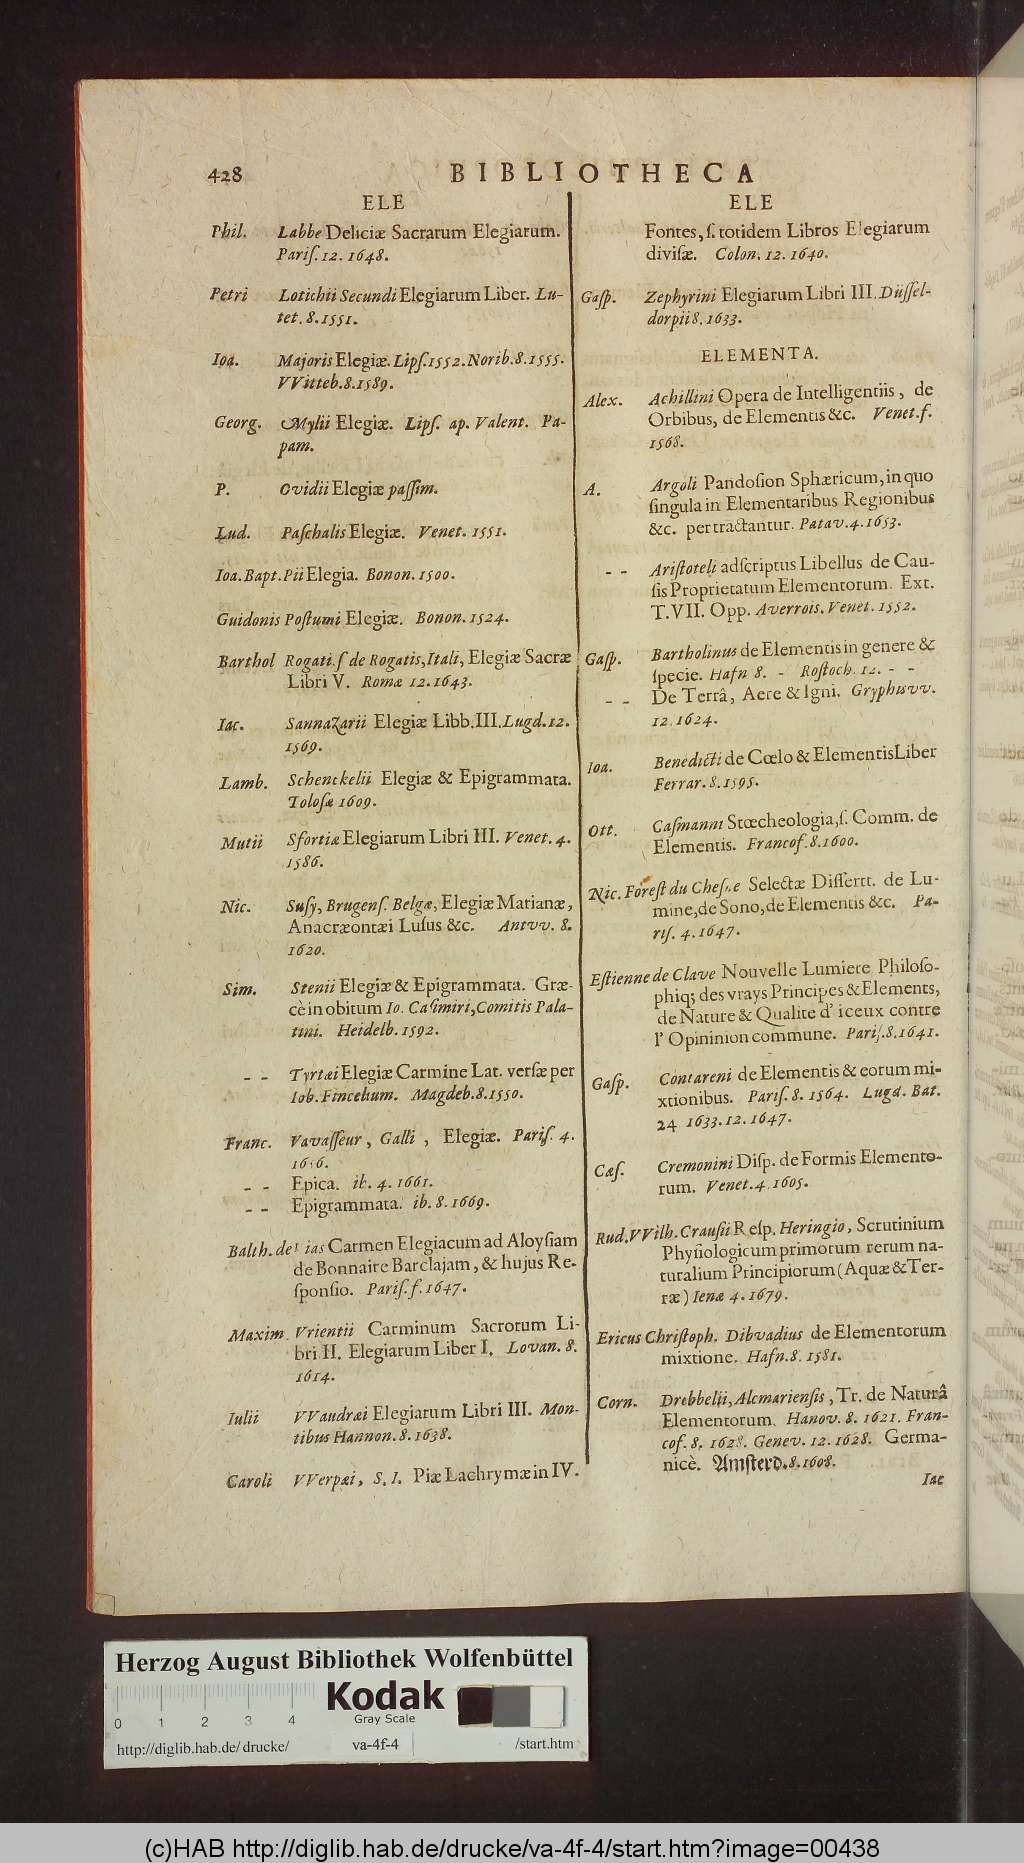 428 BIBLIOTHECA
ELE
Phil. Labbe Deliciæ Sacrarum Elegiarum.
Pariſ. 12. 1648.
Petri Lotichii Secundi Elegiarum Liber. Lu-
tet. 8. 1551.
Ioa. Majoris Elegiæ. Lipſ. 1552. Norib. 8. 1555.
VVitteb. 8. 1589.
Georg. Mylii Elegiæ. Lipſ. ap. Valent. Pa-
pam.
P. Ovidii Elegiæ paſſim.
Lud. Paſchalis Elegiæ. Venet. 1551.
Ioa. Bapt. Pii Elegia. Bonon. 1500.
Guidonis Poſtumi Elegiæ. Bonon. 1524.
Barthol Rogati. ſ de Rogatis, Itali, Elegiæ Sacræ
Libri V. Romæ 12. 1643.
Iac. Sannazarii Elegiæ Libb. III. Lugd. 12.
1569.
Lamb. Schenckelii Elegiæ & Epigrammata.
Toloſæ 1609.
Mutii Sfortiæ Elegiarum Libri III. Venet. 4.
1586.
Nic. Suſy, Brugenſ. Belgæ, Elegiæ Marianæ,
Anacræontæi Luſus &c. Antvv. 8.
1620.
Sim. Stenii Elegiæ & Epigrammata. Græ-
cè in obitum Io. Caſimiri, Comitis Pala-
tini. Heidelb. 1592.
- - Tyrtæi Elegiæ Carmine Lat. verſæ per
Ioh. Fincelium. Magdeb. 8. 1550.
Franc. Vavaſſeur, Galli, Elegiæ. Pariſ. 4.
1656.
- - Epica. ib. 4. 1661.
- - Epigrammata. ib. 8. 1669.
Balth. de ias Carmen Elegiacum ad Aloyſiam
de Bonnaire Barclajam, & hujus Re-
ſponſio. Pariſ. f. 1647.
Maxim. Vrientii Carminum Sacrorum Li-
bri II. Elegiarum Liber I. Lovan. 8.
1614.
Iulii VVaudræi Elegiarum Libri III. Mon-
tibus Hannon. 8. 1638.
Caroli VVerpæi, S. I. Piæ Lachrymæ in IV.
ELE
Fontes, ſ. totidem Libros Elegiarum
diviſæ. Colon. 12. 1640.
Gaſp. Zephyrini Elegiarum Libri III. Düſſel-
dorpii 8. 1633.
ELEMENTA.
Alex. Achillini Opera de Intelligentiis, de
Orbibus, de Elementis &c. Venet. f.
1568.
A. Argoli Pandoſion Sphæricum, in quo
ſingula in Elementaribus Regionibus
&c. pertractantur. Patav. 4. 1653.
- - Ariſtoteli adſcriptus Libellus de Cau-
ſis Proprietatum Elementorum. Ext.
T. VII. Opp. Averrois. Venet. 1552.
Gaſp. Bartholinus de Elementis in genere &
ſpecie. Hafn 8. - Roſtoch. 12. - -
- - De Terrâ, Aere & Igni. Gryphsvv.
12. 1624.
Ioa. Benedicti de Cœlo & Elementis Liber
Ferrar. 8. 1595.
Ott. Caſmanni Stœcheologia, ſ. Comm. de
Elementis. Francof. 8. 1600.
Nic. Foreſt du Cheſne Selectæ Diſſertt. de Lu-
mine, de Sono, de Elementis &c. Pa-
riſ. 4. 1647.
Eſtienne de Clave Nouvelle Lumiere Philoſo-
phiq; des vrays Principes & Elements,
de Nature & Qualite d' iceux contre
l' Opininion commune. Pariſ. 8. 1641.
Gaſp. Contareni de Elementis & eorum mi-
xtionibus. Pariſ. 8. 1564. Lugd. Bat.
24 1633. 12. 1647.
Cæſ. Cremonini Diſp. de Formis Elemento-
rum. Venet. 4. 1605.
Rud. VVilh. Crauſii Reſp. Heringio, Scrutinium
Phyſiologicum primorum rerum na-
turalium Principiorum (Aquæ & Ter-
ræ) Ienæ 4. 1679.
Ericus Chriſtoph. Dibvadius de Elementorum
mixtione. Hafn. 8. 1581.
Corn. Drebbelii, Alcmarienſis, Tr. de Naturâ
Elementorum. Hanov. 8. 1621. Fran-
cof. 8. 1628. Genev. 12. 1628. Germa-
nicè. Amſterd. 8. 1608.
Iac
Herzog August Bibliothek Wolfenbüttel
Kodak
Gray Scale
0 1 2 3 4
http://diglib.hab.de/ drucke/ va-4f-4 /start.htm
(c)HAB http://diglib.hab.de/drucke/va-4f-4/start.htm?image=00438